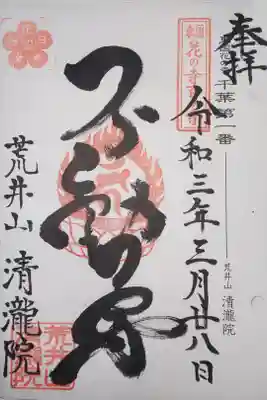 奉拝
東国花の寺百ヶ寺
千葉第一番
荒井山 清瀧院
令和三年三月廿八日
不動尊
荒井山 清瀧院